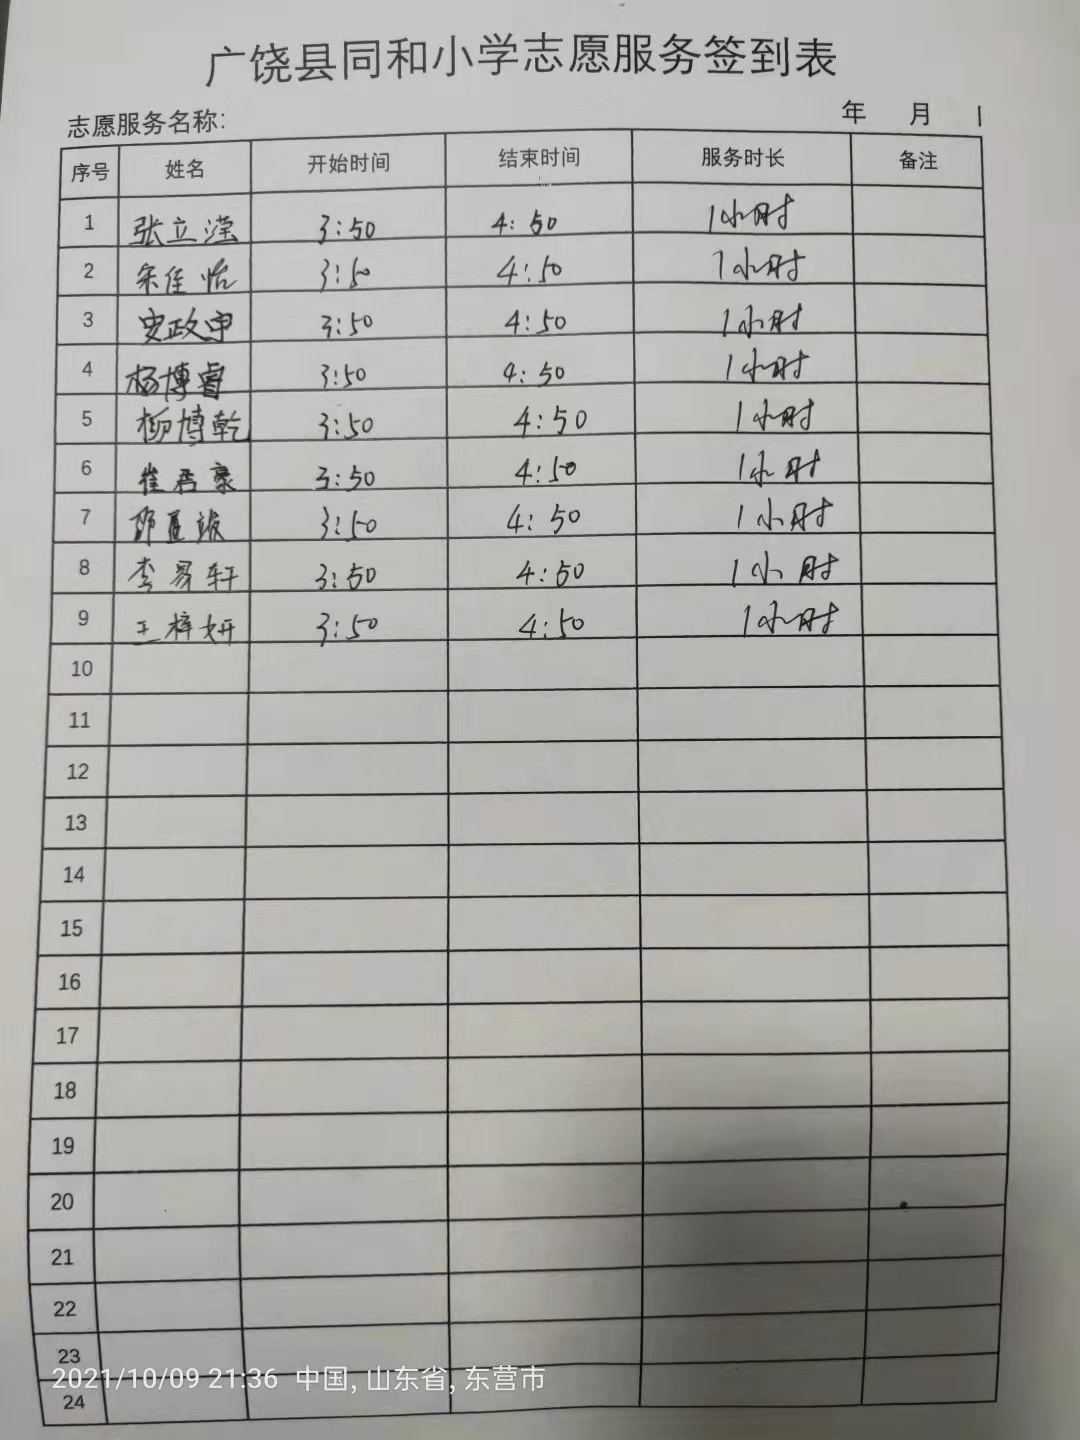 广饶县同和小学志愿服务签到表
志愿服务名称: 年 月
序号 姓名 开始时间 结束时间 服务时长 备注
1 张立滢 3:50 4:50 1小时
2 宋佳怡 3:50 4:50 1小时
3 安政宇 3:50 4:50 1小时
4 杨博睿 3:50 4:50 1小时
5 杨博乾 3:50 4:50 1小时
6 崔君豪 3:50 4:50 1小时
7 3:50 4:50 1小时
8 李家轩 3:50 4:50 1小时
9 王梓妍 3:50 4:50 1小时
10
11
12
13
14
15
16
17
18
19
20
21
22
23
2021/10/09 21:36 中国, 山东省, 东营市
24